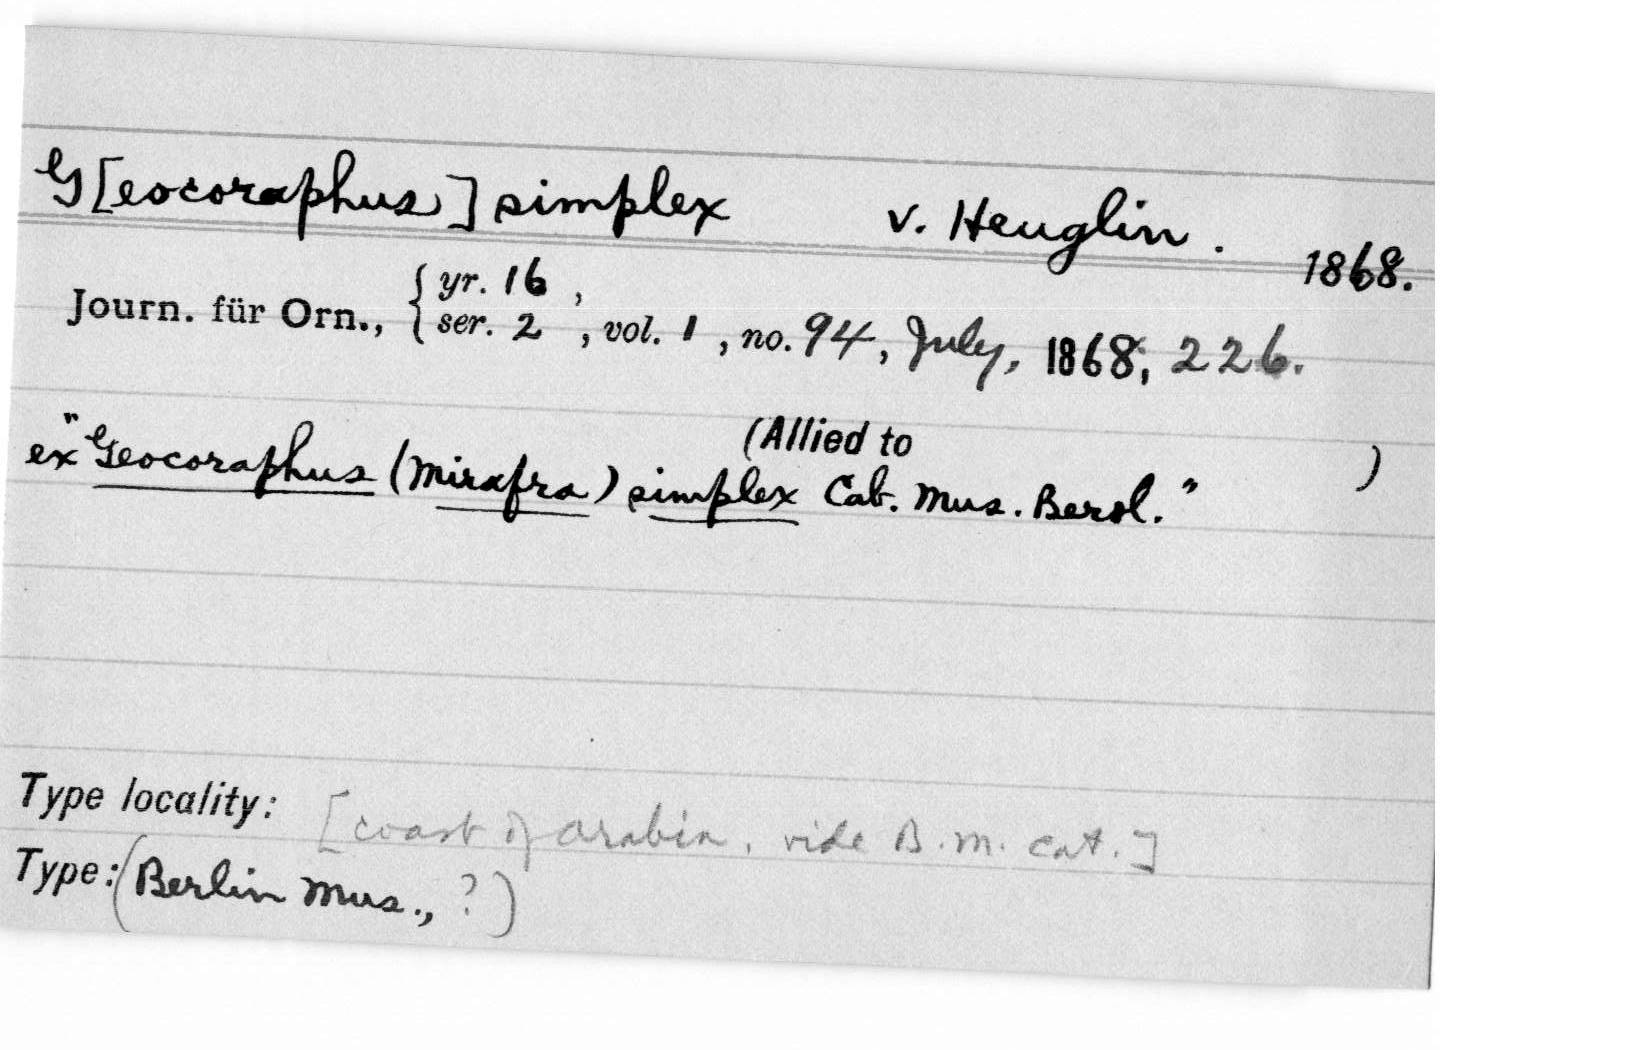 G[eocoraphus] simplex v. Heuglin. 1868.
Journ. für Orn., { yr. 16, ser. 2, vol. 1, no. 94, July, 1868; 226.
(Allied to )
ex "Geocoraphus (Mirafra) simplex Cab. Mus. Berol."
Type locality: [coast of Arabia, vide B.M. Cat.]
Type: (Berlin Mus., ?)